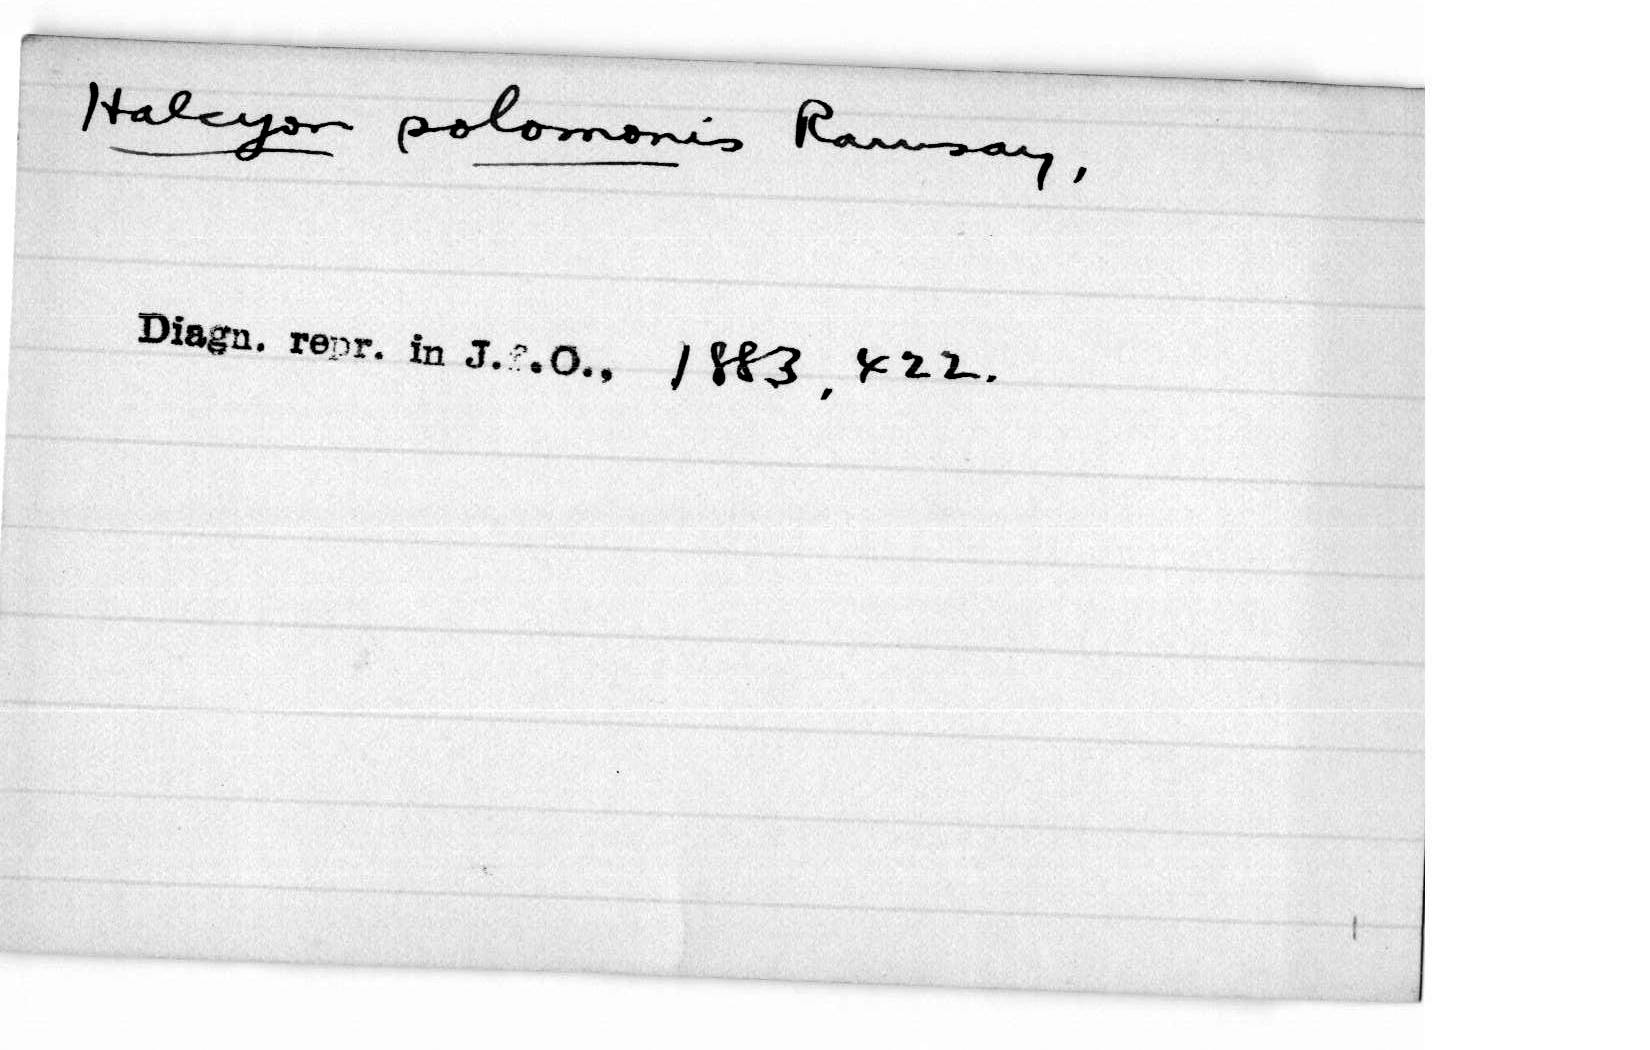 Halcyon solomonis Ramsay,
Diagn. repr. in J.f.O., 1883, 422.